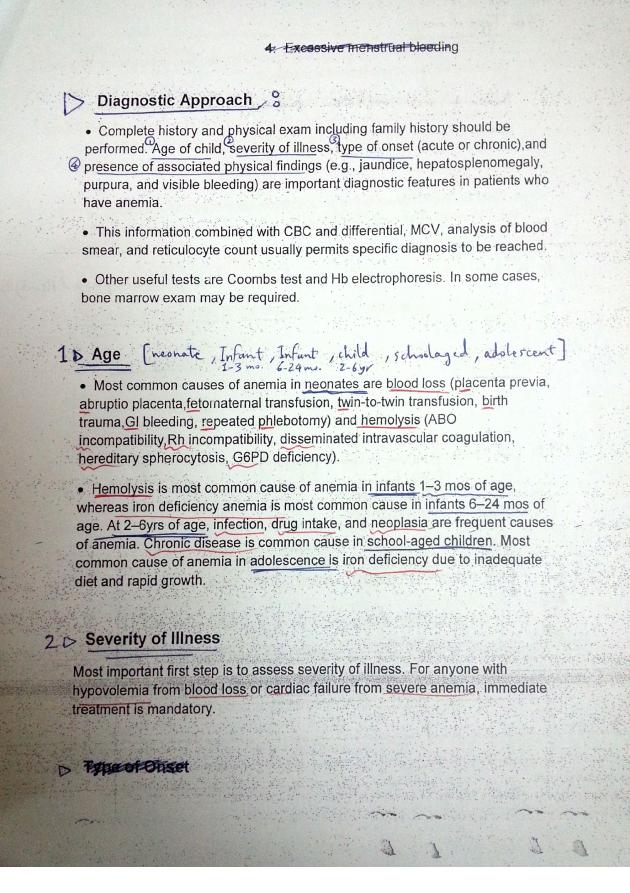 4. Excessive menstrual bleeding
Diagnostic Approach :
• Complete history and physical exam including family history should be
performed. ① Age of child, ② severity of illness, ③ type of onset (acute or chronic),and
④ presence of associated physical findings (e.g., jaundice, hepatosplenomegaly,
purpura, and visible bleeding) are important diagnostic features in patients who
have anemia.
• This information combined with CBC and differential, MCV, analysis of blood
smear, and reticulocyte count usually permits specific diagnosis to be reached.
• Other useful tests are Coombs test and Hb electrophoresis. In some cases,
bone marrow exam may be required.
1 Age [neonate , Infant , Infant , child , schoolaged , adolescent]
1-3 mo. 6-24 mo. 2-6yr
• Most common causes of anemia in neonates are blood loss (placenta previa,
abruptio placenta,fetomaternal transfusion, twin-to-twin transfusion, birth
trauma,GI bleeding, repeated phlebotomy) and hemolysis (ABO
incompatibility,Rh incompatibility, disseminated intravascular coagulation,
hereditary spherocytosis, G6PD deficiency).
• Hemolysis is most common cause of anemia in infants 1–3 mos of age,
whereas iron deficiency anemia is most common cause in infants 6–24 mos of
age. At 2–6yrs of age, infection, drug intake, and neoplasia are frequent causes
of anemia. Chronic disease is common cause in school-aged children. Most
common cause of anemia in adolescence is iron deficiency due to inadequate
diet and rapid growth.
2 Severity of Illness
Most important first step is to assess severity of illness. For anyone with
hypovolemia from blood loss or cardiac failure from severe anemia, immediate
treatment is mandatory.
Type of Onset